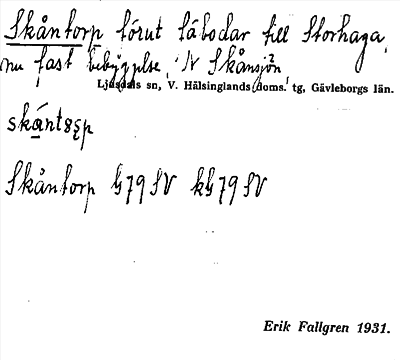 Skåntorp förut fäbodar till Storhaga,
nu fast bebyggelse, N Skånsjön,
Ljusdals sn, V. Hälsinglands doms. tg, Gävleborgs län.
skántsp
Skåntorp G79SV kG79SV
Erik Fallgren 1931.